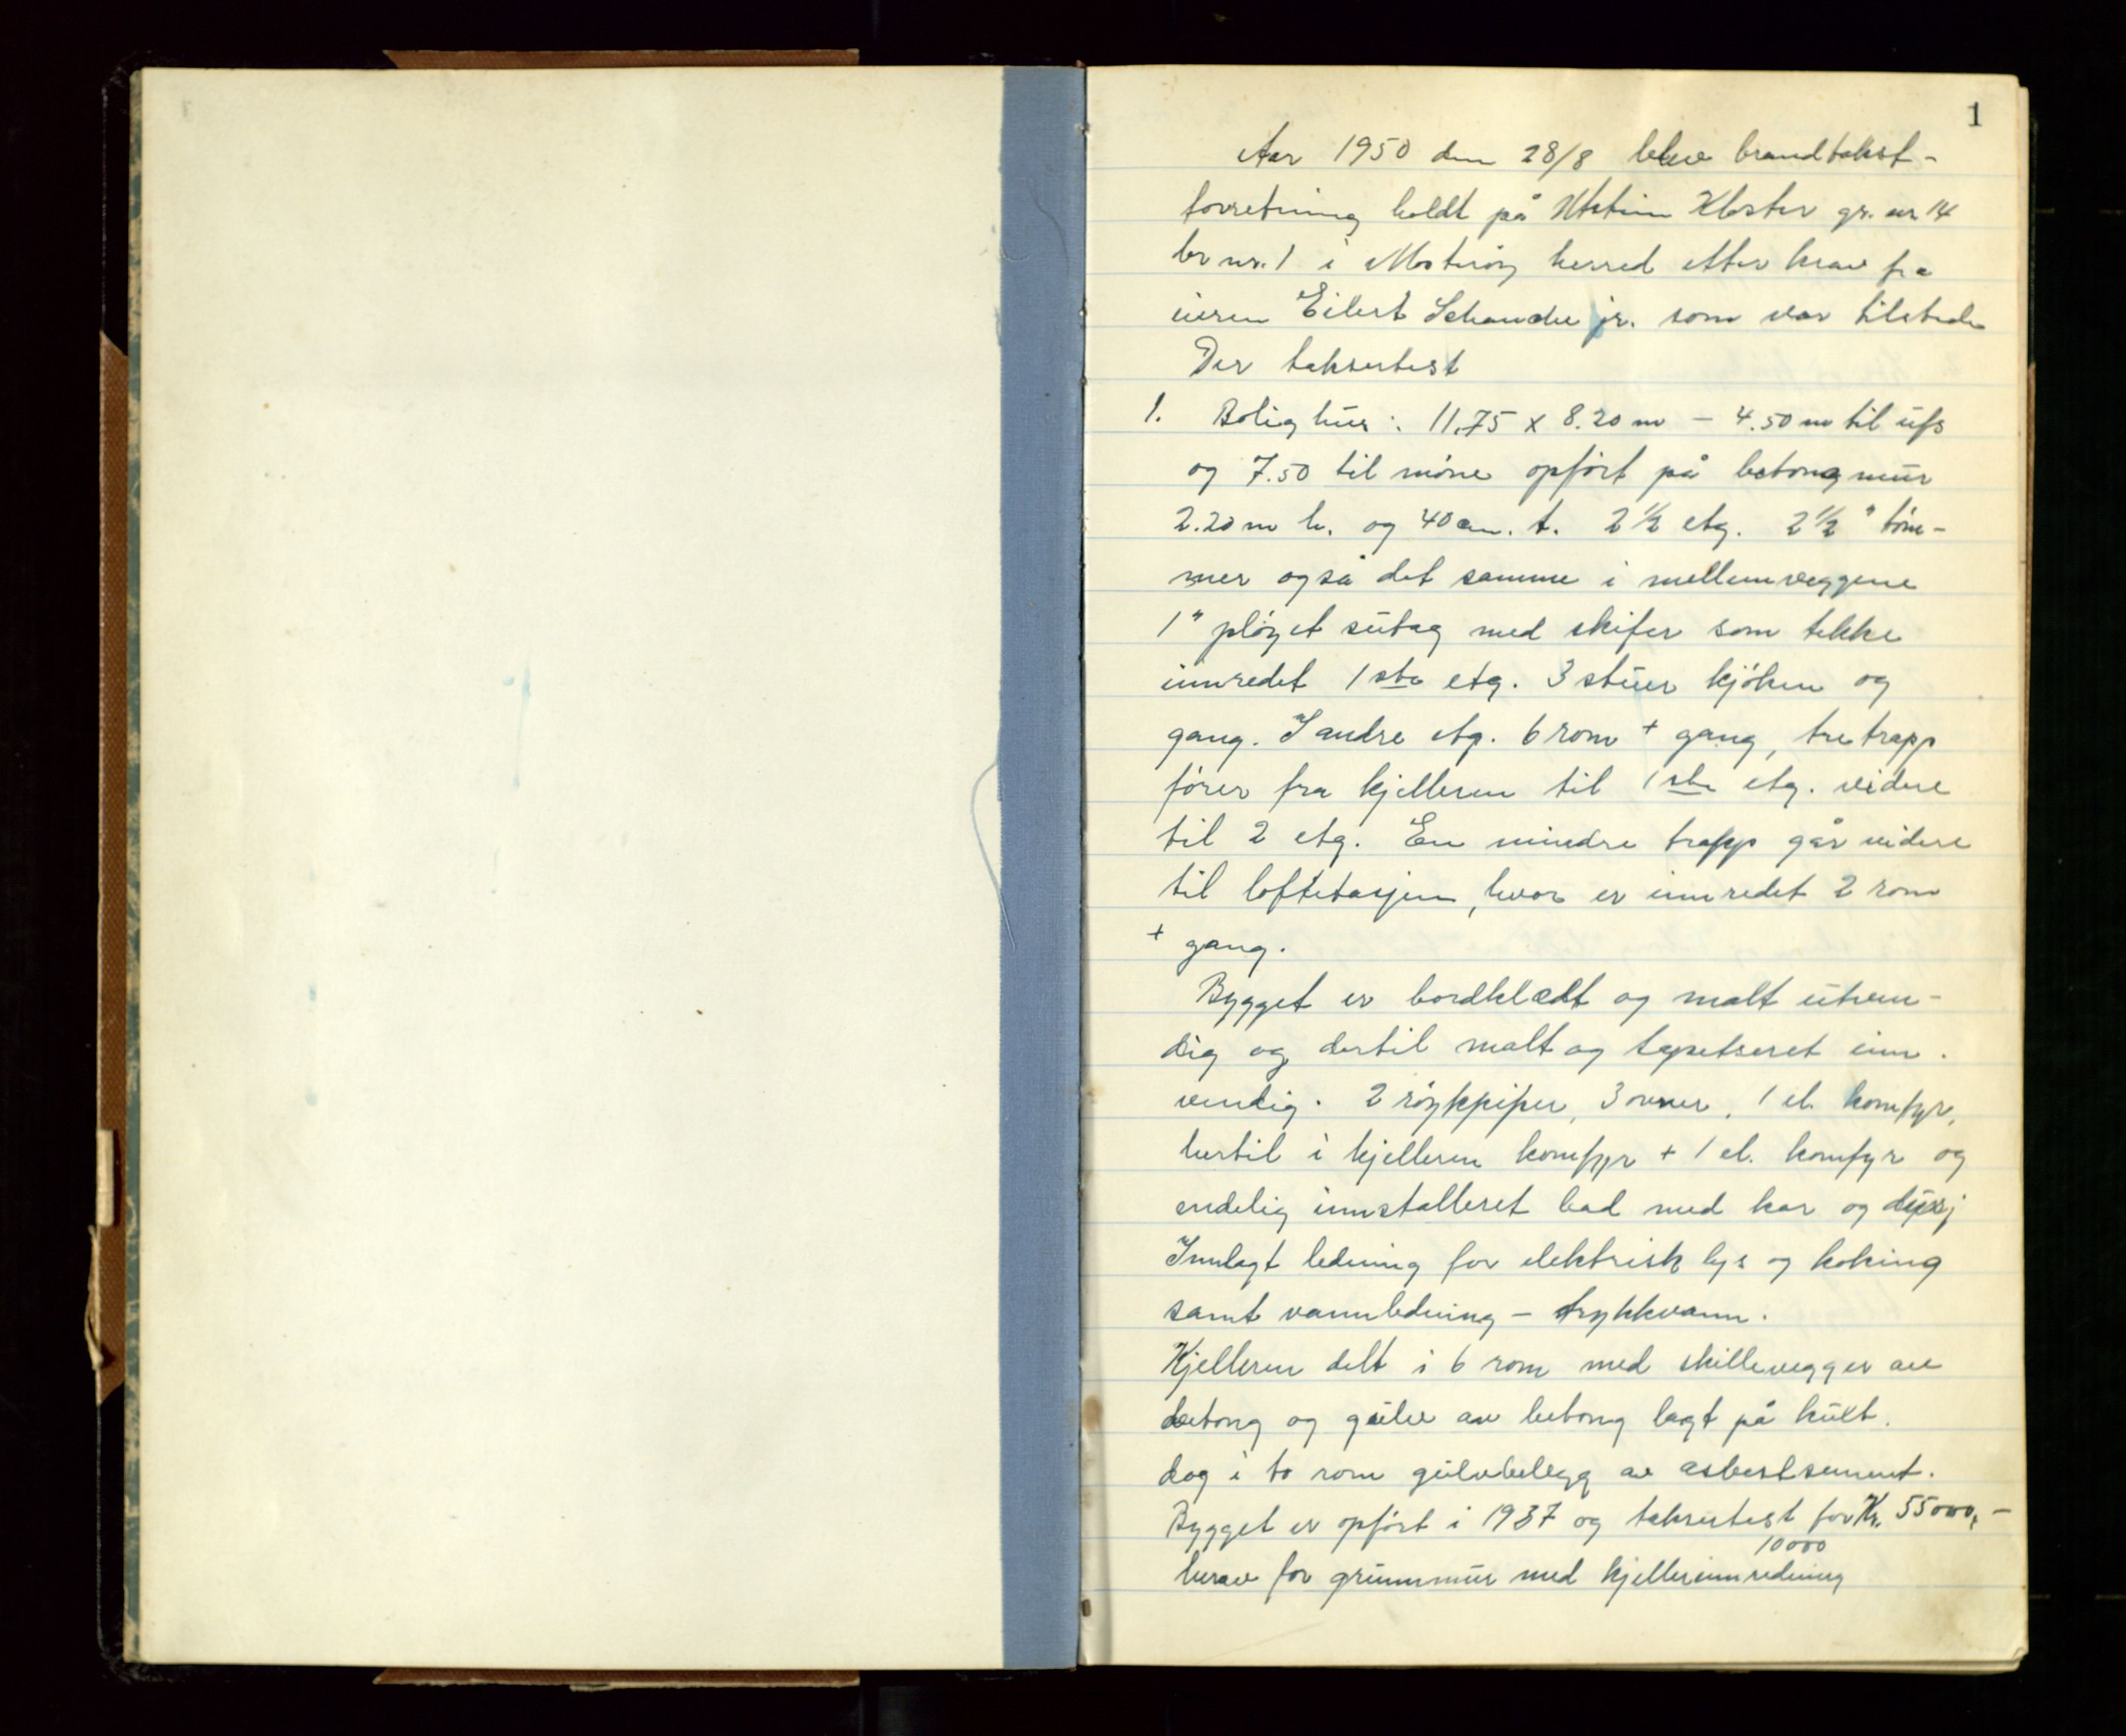 1
Aar 1950 den 28/8 blev brandtakst-
forretning holdt på Utstein Kloster gr. nr. 14
br nr. 1 i Mosterøy herred etter krav fra
eieren Eilert Schanche jr. som var tilstede
Der taksertest
1. Bolighus: 11.75 x 8.20 m - 4.50 m til ufs
og 7.50 til møne opført på betongmur
2.20 m h. og 40 cm. t. 2 1/2 etg. 2 1/2" tøm-
mer også det samme i mellemveggene
1" pløyet sutag med skifer som tekke
innredet 1ste etg. 3 stuer kjøken og
gang. I andre etg. 6 rom + gang, tretrapp
fører fra kjelleren til 1ste etg. videre
til 2 etg. En mindre trapp går videre
til loftetasjen, hvor er innredet 2 rom
+ gang.
Bygget er bordklædt og malt utven-
dig og dertil malt og tapetseret inn.
vendig. 2 røykpiper, 3 ovner, 1 el. komfyr,
hertil i kjelleren komfyr + 1 el. komfyr og
endelig innstalleret bad med kar og dusj
Innlagt ledning for elektrisk lys og koking
samt vannledning - trykkvann.
Kjelleren delt i 6 rom med skillevegger av
betong og gulv av betong lagt på kult.
dog i to rom gulvbelegg av asbestsement.
Bygget er opført i 1937 og taksertest for Kr. 55000,-
10000
herav for grunnmur med kjellerinnredning